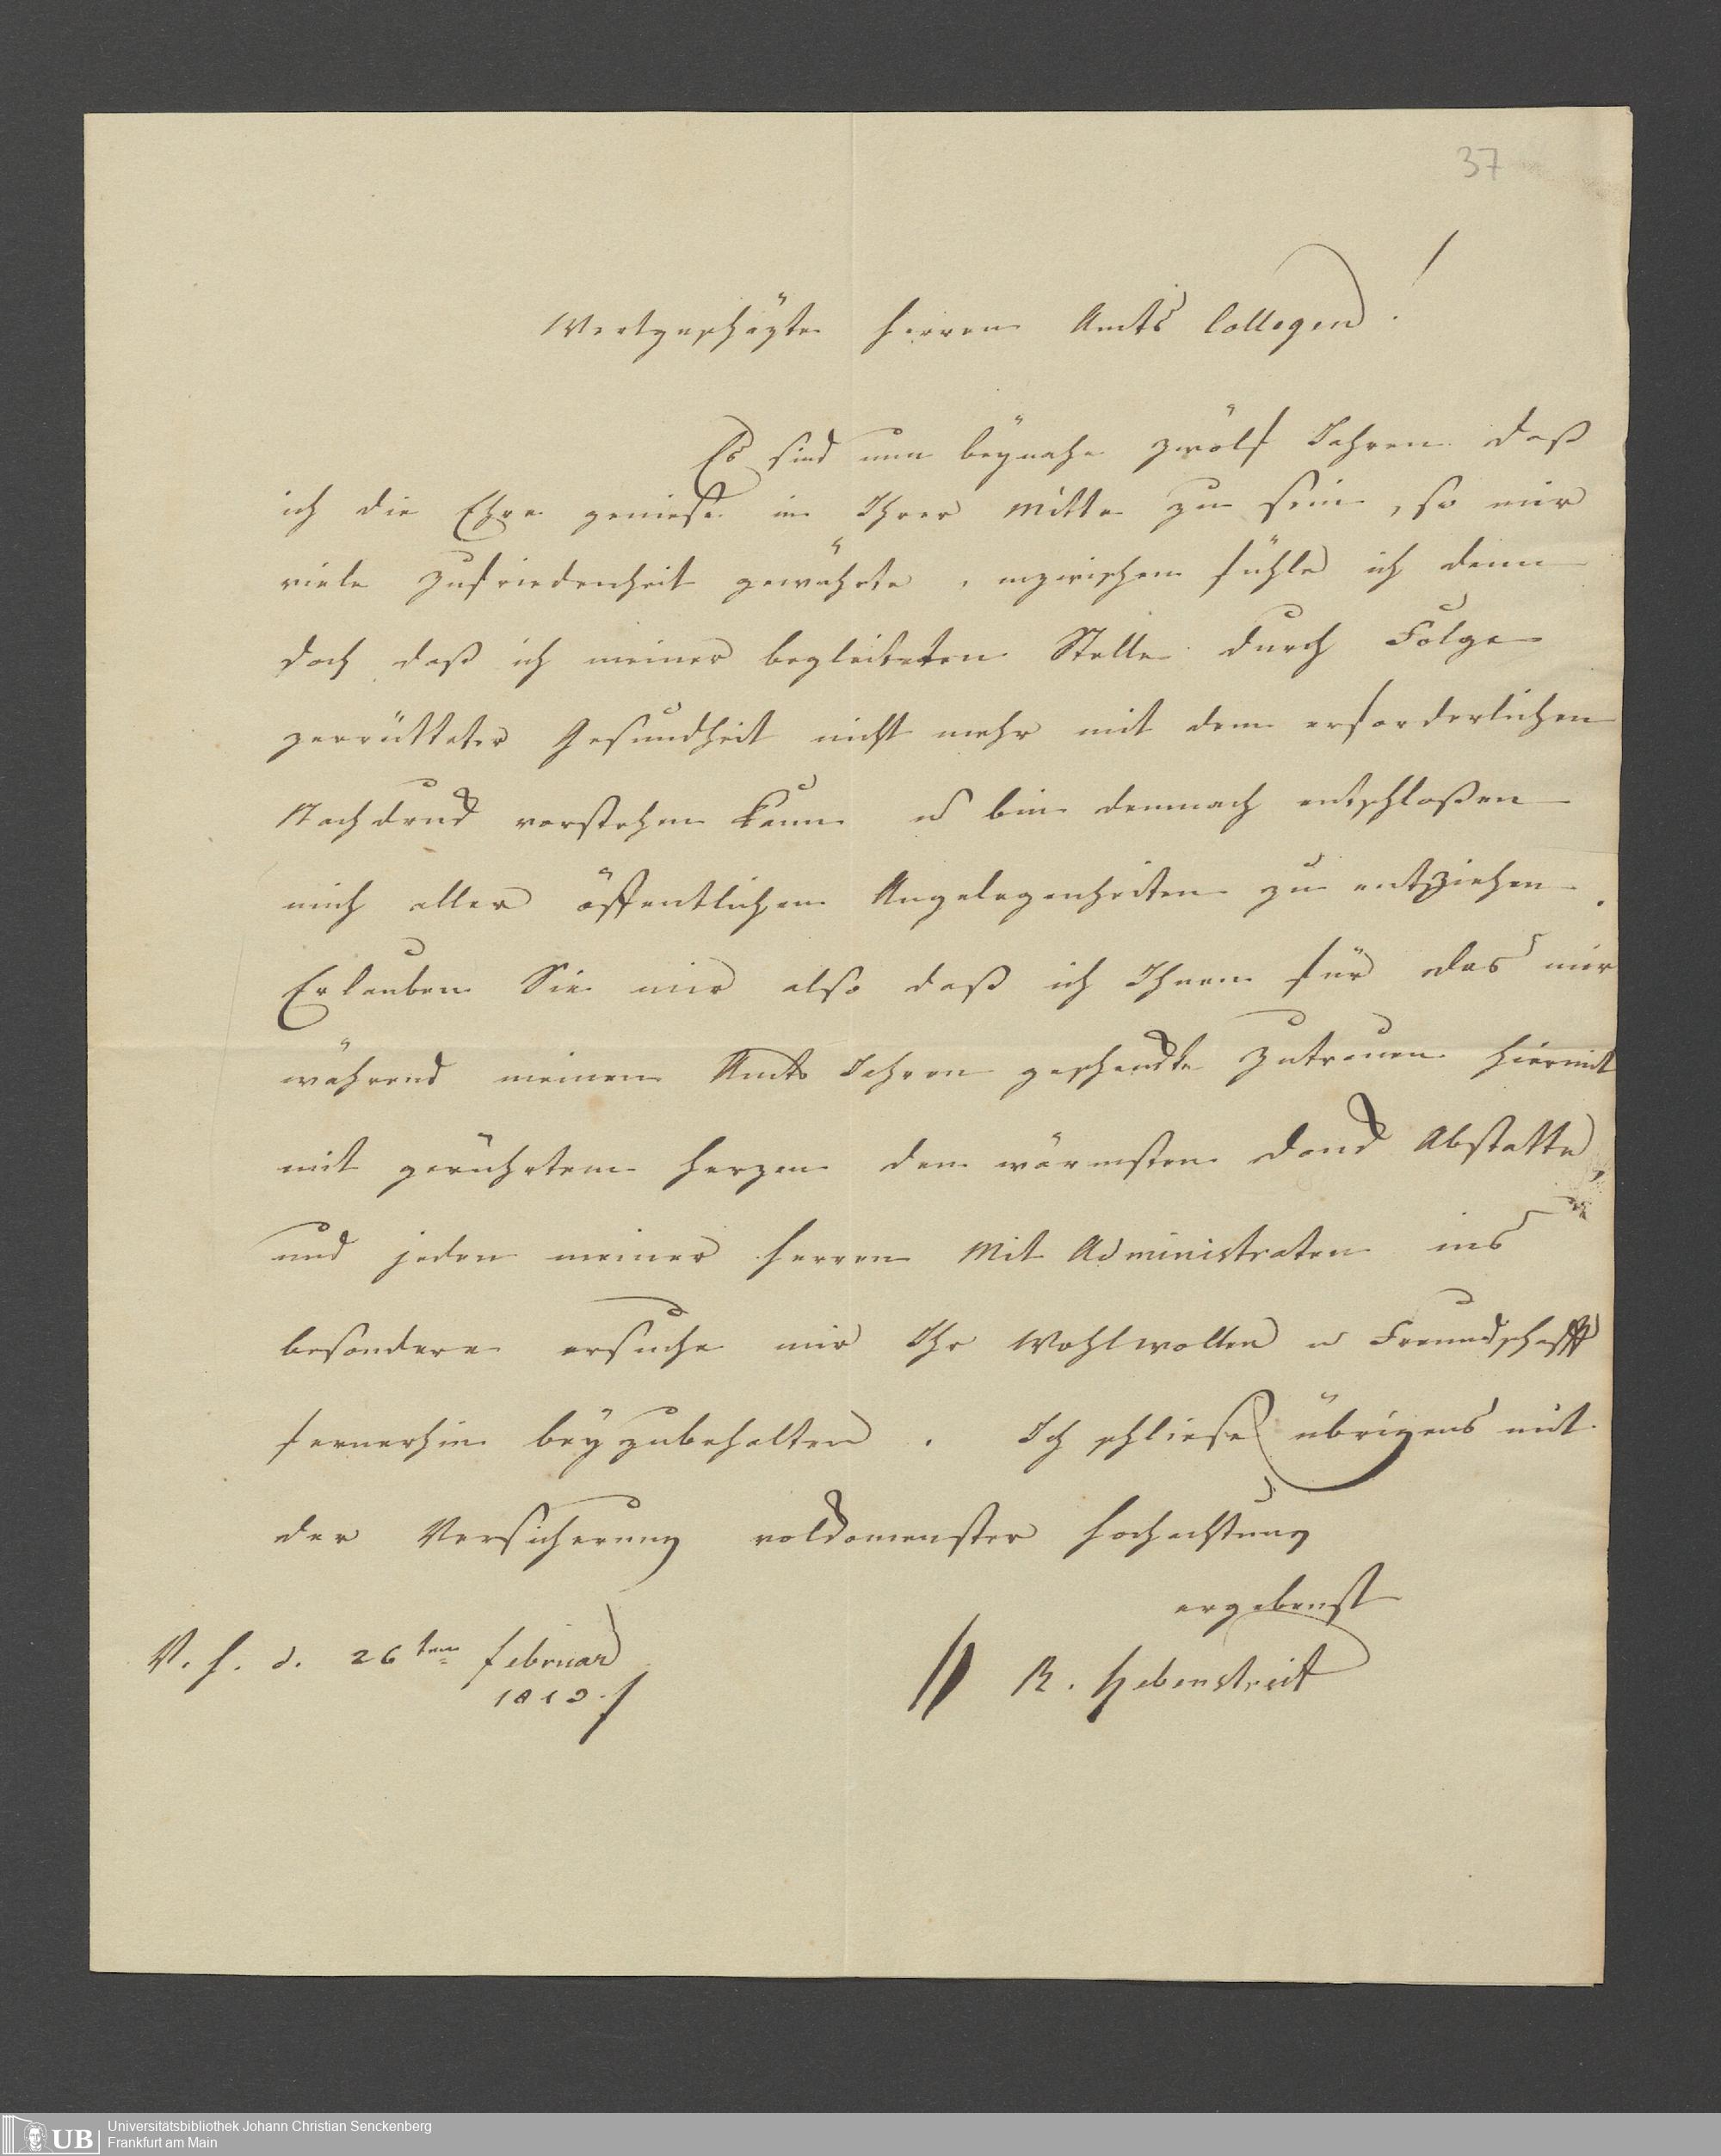 37
Wertgeschäzte Herren Amts Collegen!
Es sind nun beÿnahe zwölf Jahren daß
ich die Ehre geniese in Ihrer Mitte zu sein, so mir
viele Zufriedenheit gewährte, inzwischen fühle ich denn
doch daß ich meiner begleiteten Stelle durch Folge
zerrütteter Gesundheit nicht mehr mit dem erforderlichen
Nachdruck vorstehen kann u bin demnach entschloßen
mich aller öffentlichen Angelegenheiten zu entziehen.
Erlauben Sie mir also daß ich Ihnen für das mir
während meinen Amts Jahren geschenckte Zutrauen hiermit
mit gerührtem Herzen den wärmsten Danck Abstatte,
und jeden meiner Herren Mit Administraten ins
besondere ersuche mir Ihr Wohlwollen u Freundschafft
fernerhin beÿzubehalten. Ich schliese übrigens mit
der Versicherung volckomenster Hochachtung
ergebenst
V. H. d. 26ten Februar
R. Hebenstreit
UB Universitätsbibliothek Johann Christian Senckenberg
Frankfurt am Main